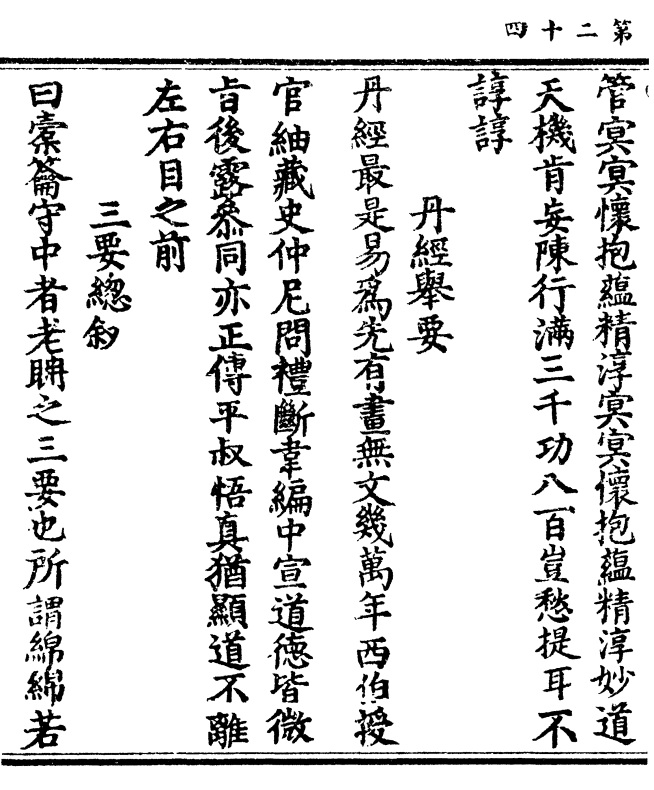 第二十四
管冥冥懷抱蘊精淳冥冥懷抱蘊精淳妙道
天機肯妄陳行滿三千功八百豈愁提耳不
諄諄
丹經舉要
丹經最是易爲先有畫無文幾萬年西伯授
官紬藏史仲尼問禮斷韋編中宣道德皆微
旨後露叅同亦正傳平叔悟真猶顯道不離
左右目之前
三要總敘
曰橐籥守中者老聃之三要也所謂綿綿若